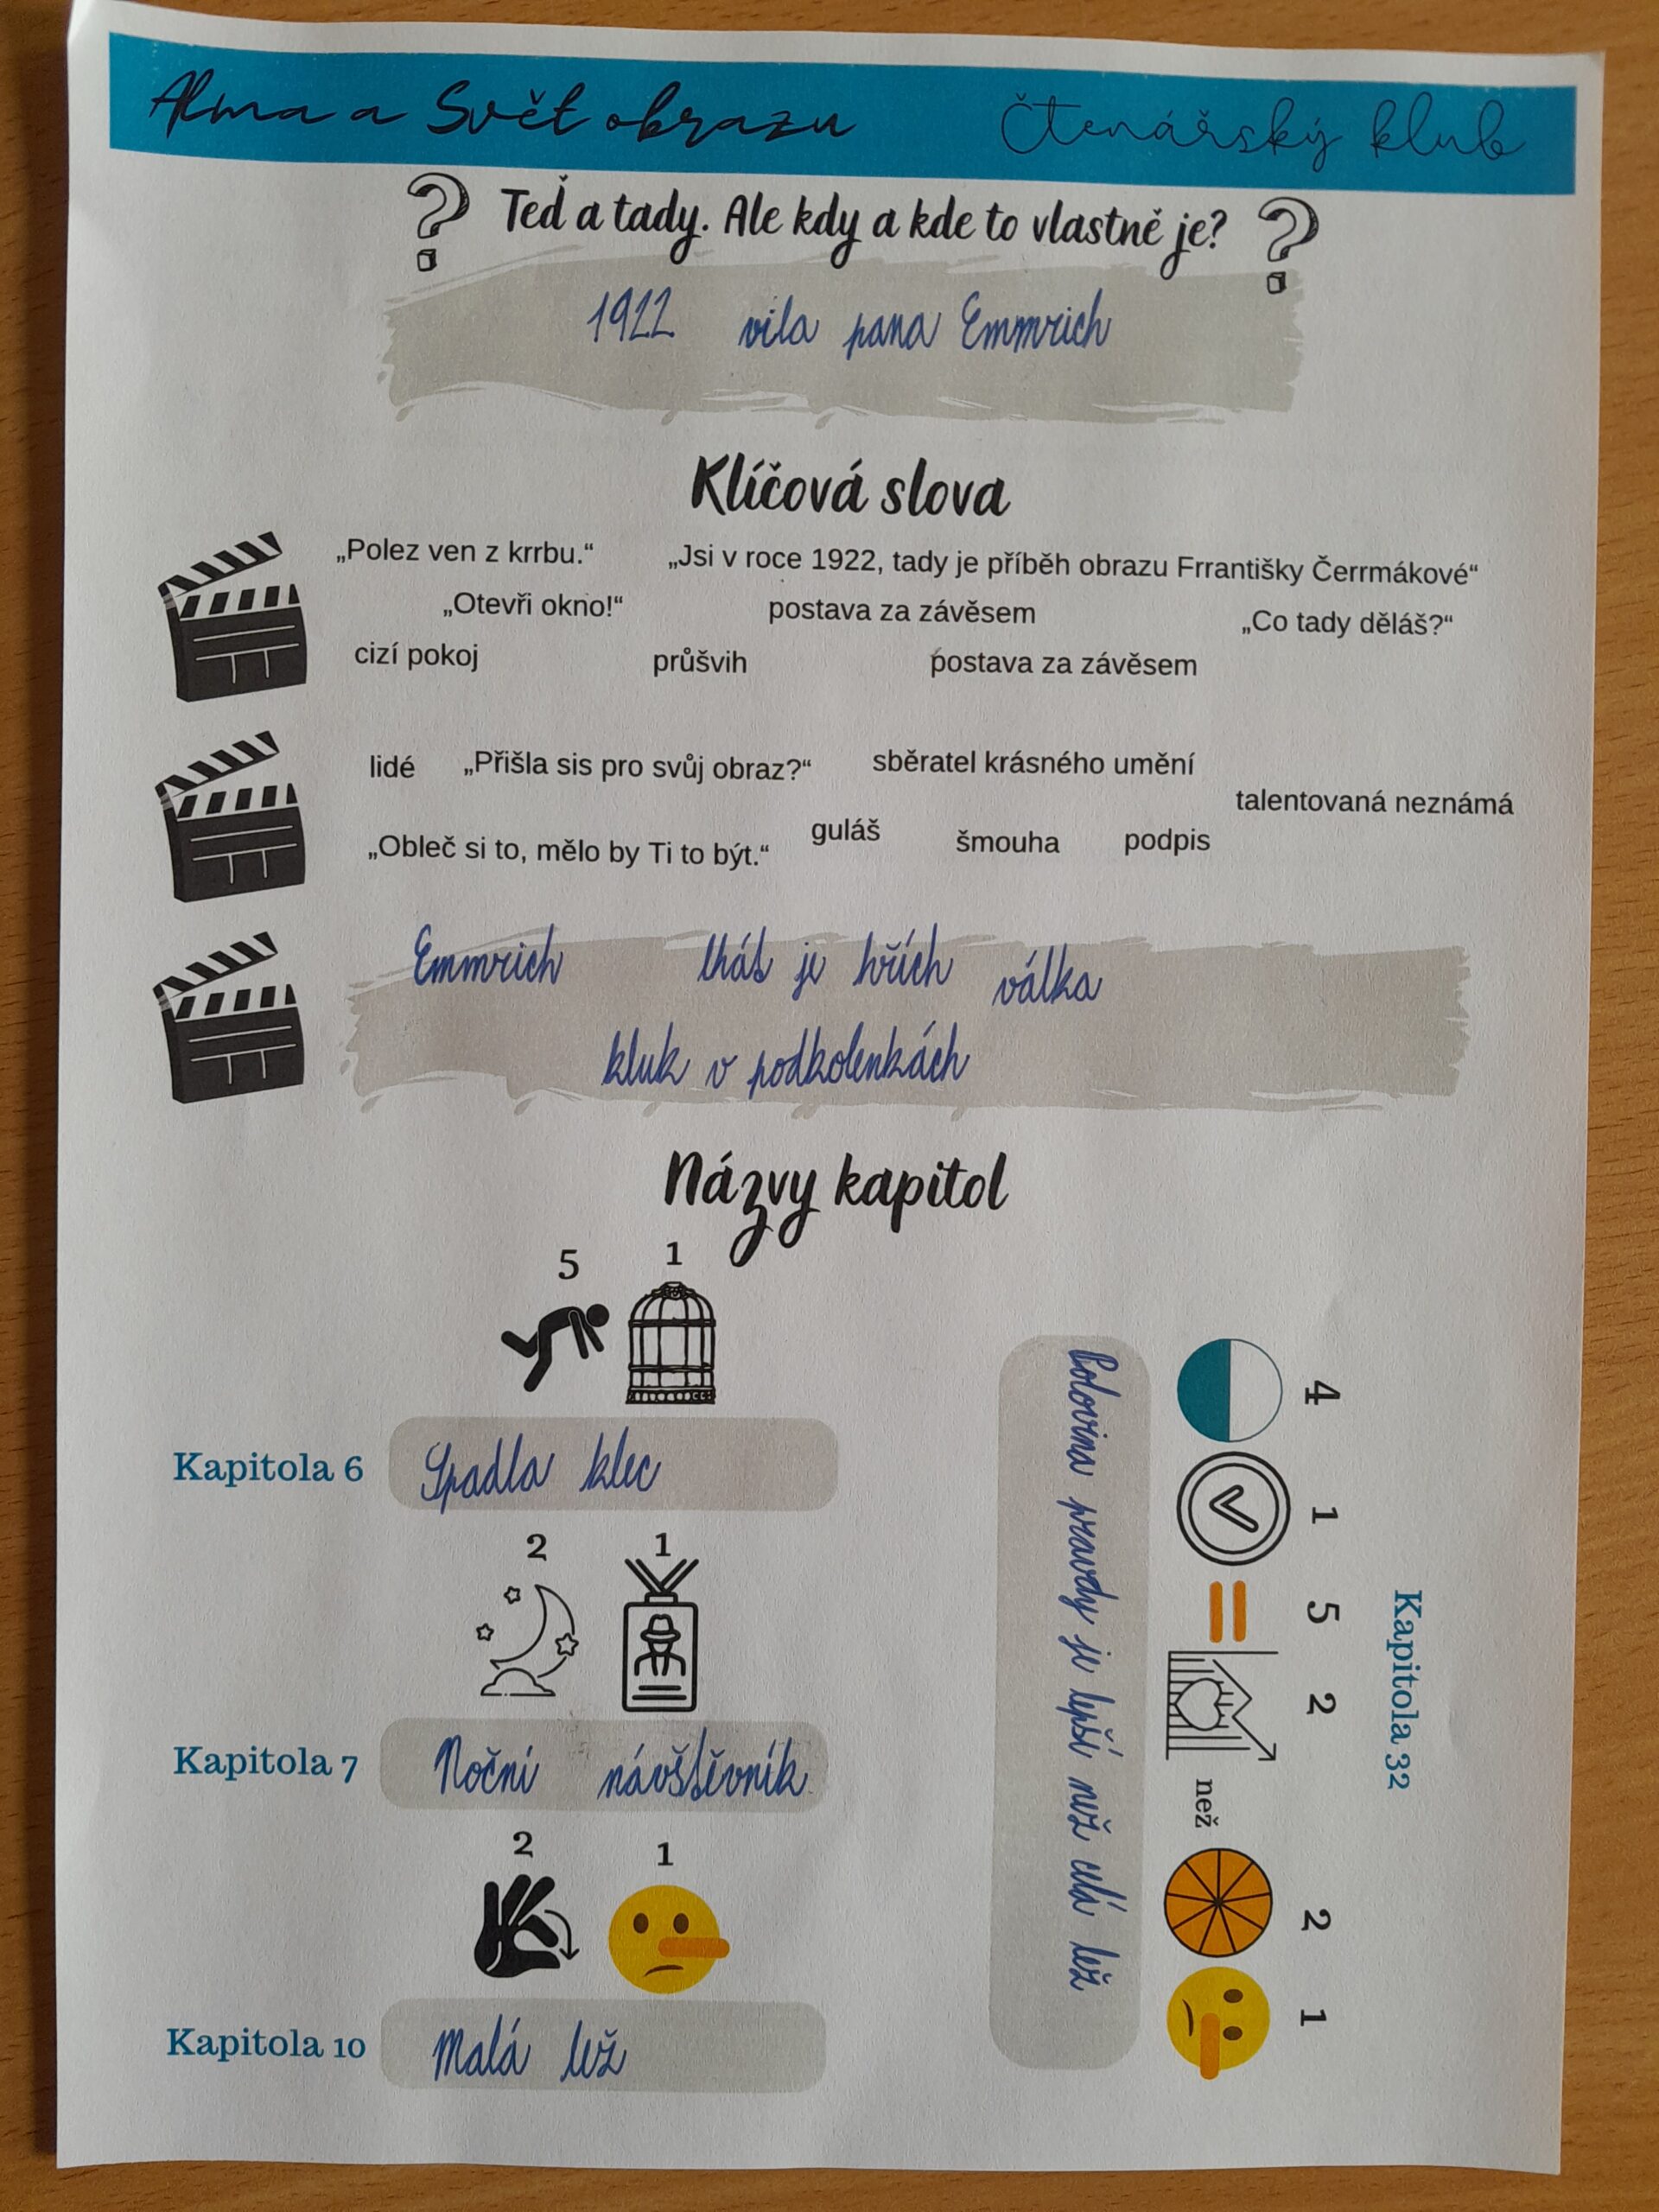 Alma a Svět obrazu Čtenářský klub
? Teď a tady. Ale kdy a kde to vlastně je? ?
1922 vila pana Emmrich
Klíčová slova
„Polez ven z krrbu.“ „Jsi v roce 1922, tady je příběh obrazu Frrantišky Čerrmákové“
„Otevři okno!“ postava za závěsem „Co tady děláš?“
cizí pokoj průšvih postava za závěsem
lidé „Přišla sis pro svůj obraz?“ sběratel krásného umění
talentovaná neznámá
„Obleč si to, mělo by Ti to být.“ guláš šmouha podpis
Emmrich lhát je hřích válka
kluk v podkolenkách
Názvy kapitol
5 1
Kapitola 6 Spadla klec
2 1
Kapitola 7 Noční návštěvník
2 1
Kapitola 10 Malá lež
Kapitola 32
4 1 5 2 2 1
než
Polovina pravdy je lepší než celá lež